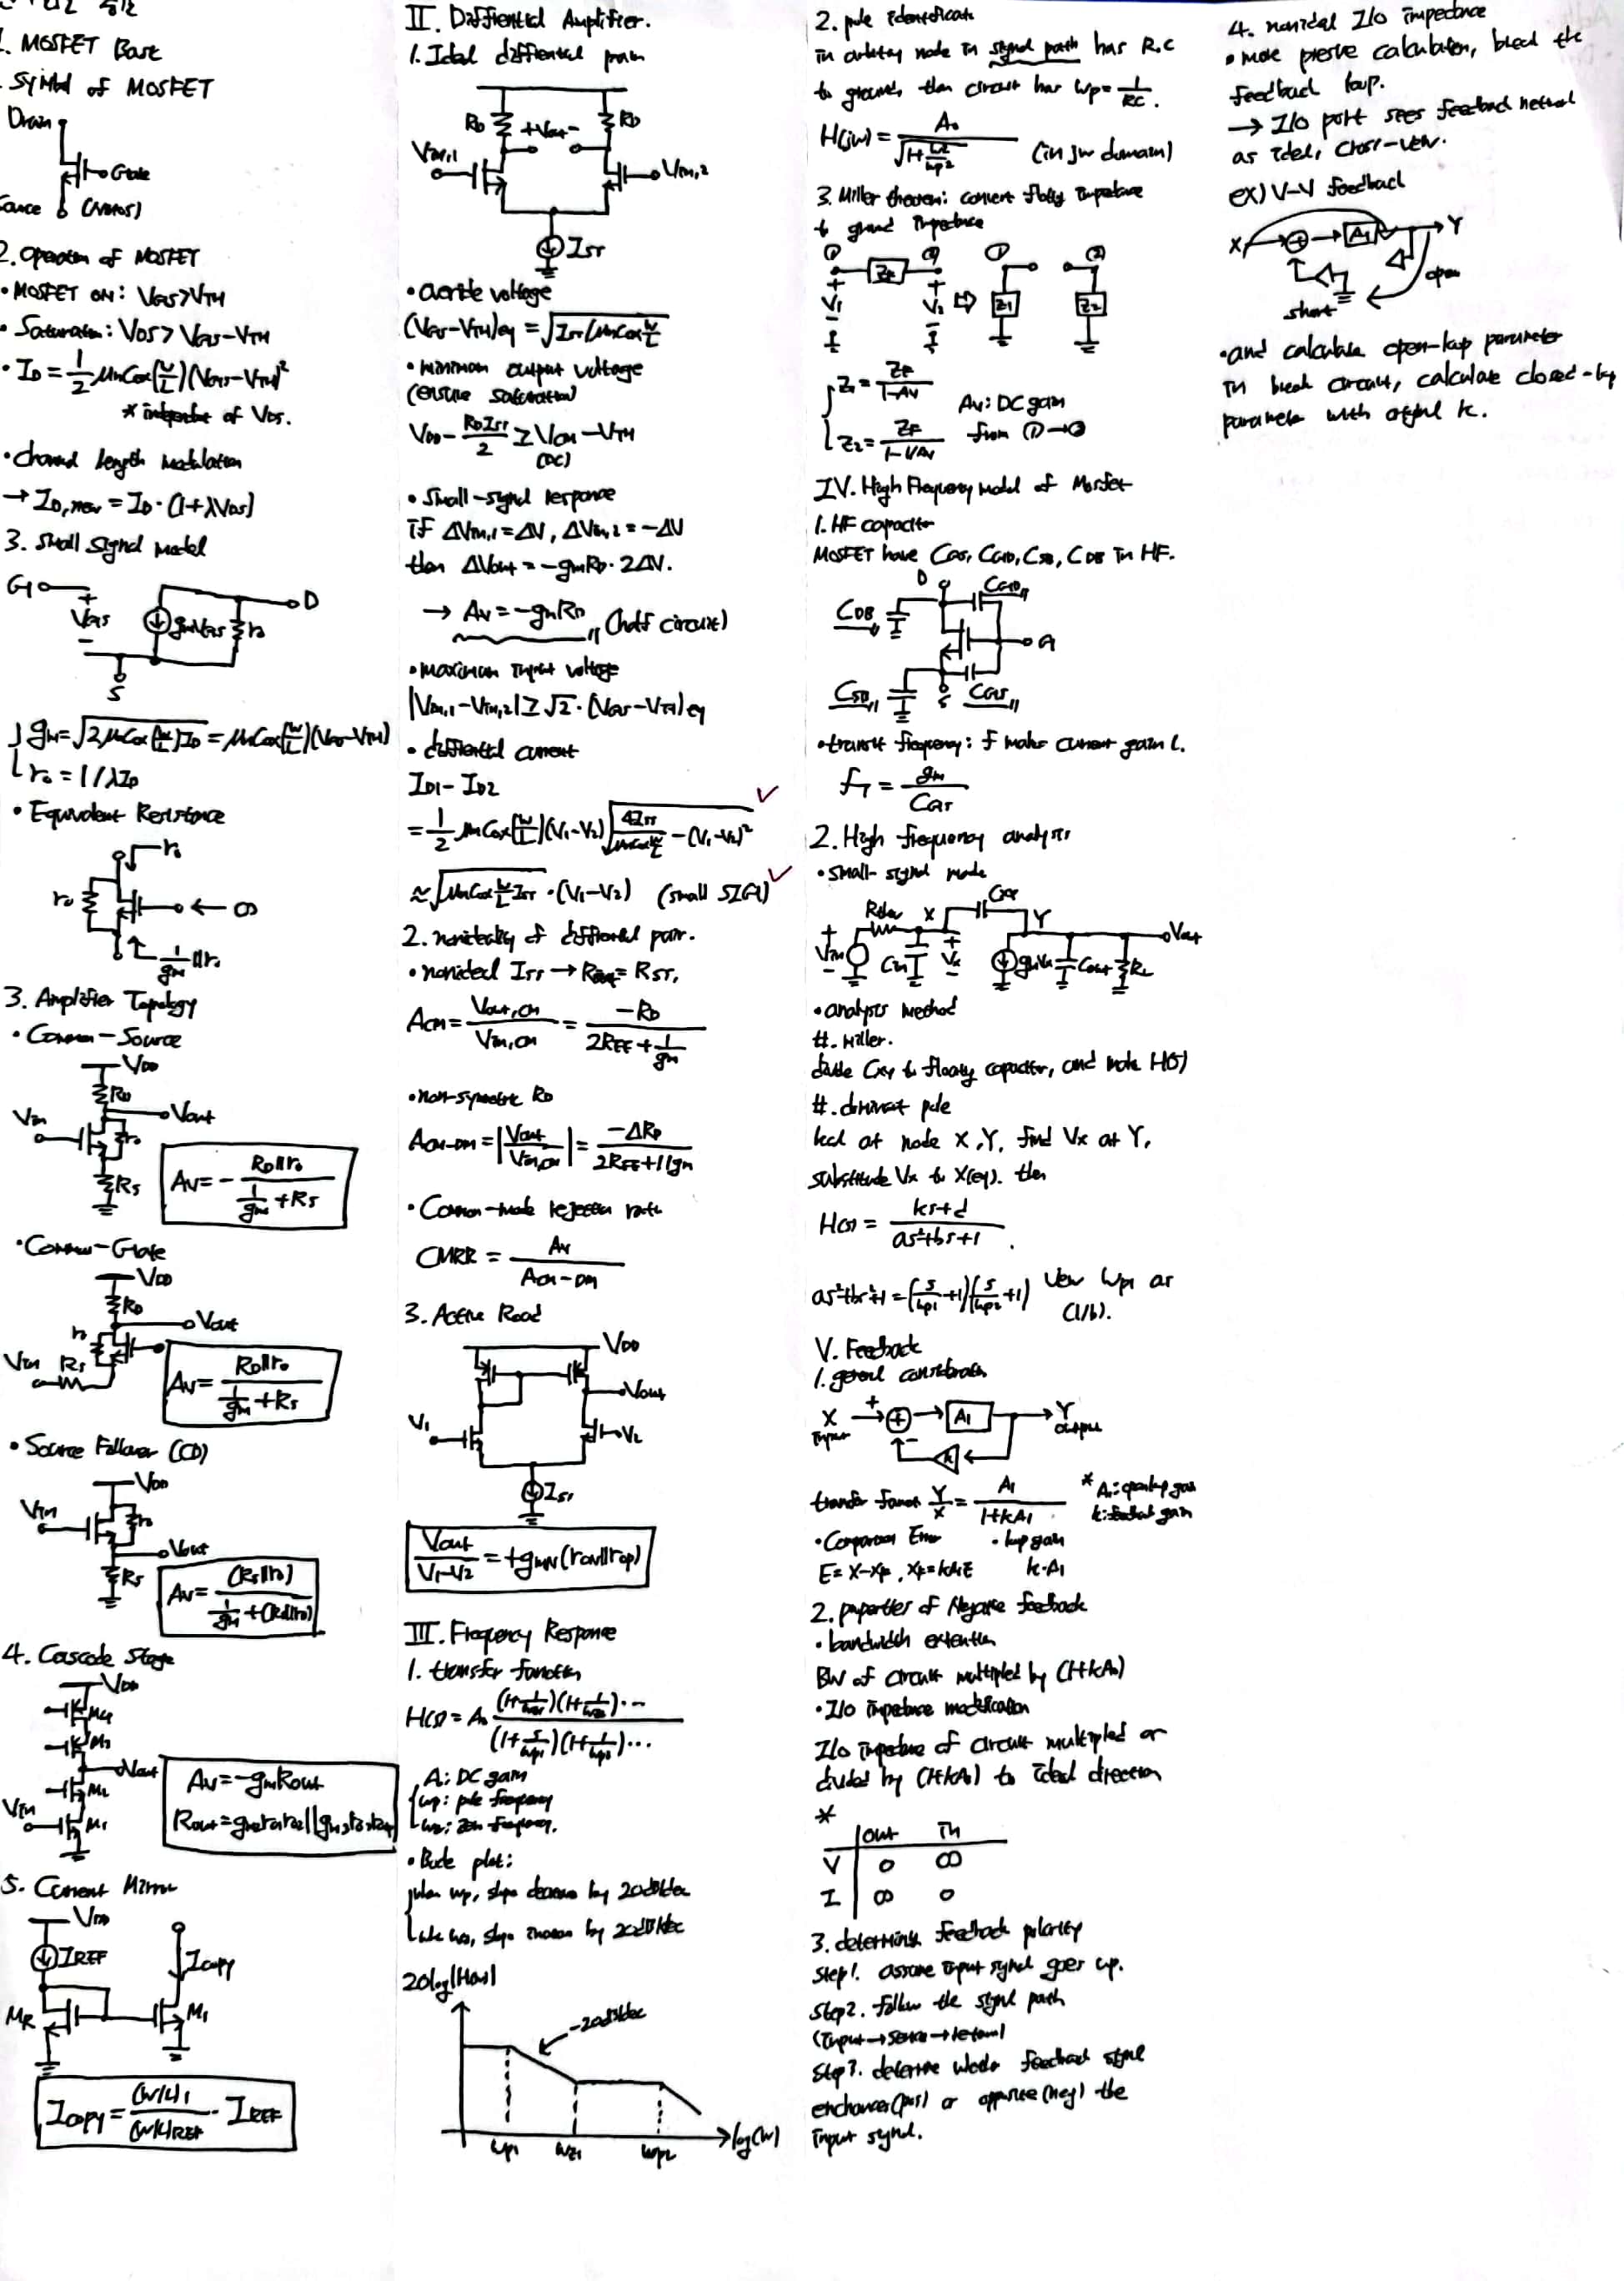 1. MOSFET Basic
Symbol of MOSFET
Drain
Gate
Source (NMOS)
2. Operation of MOSFET
• MOSFET ON: VGS>VTH
• Saturation: VDS > VGS-VTH
• ID = 1/2 μnCox(W/L)(VGS-VTH)²
* independent of VDS.
• channel length modulation
→ ID,new = ID·(1+λVDS)
3. Small signal model
G
+ VGS -
gmVGS
ro
D
S
gm = √(2μnCox(W/L)ID) = μnCox(W/L)(VGS-VTH)
ro = 1/λID
• Equivalent Resistance
ro
ro
← ∞
1/gm ∥ ro
3. Amplifier Topology
• Common-Source
VDD
RD
Vin
Vout
ro
RS
AV = - (RD∥ro)/(1/gm + RS)
• Common-Gate
VDD
RD
Vout
ro
Vin RS
AV = (RD∥ro)/(1/gm + RS)
• Source Follower (CD)
VDD
Vin
ro
Vout
RS
AV = (RS∥ro)/(1/gm + (RS∥ro))
4. Cascode Stage
VDD
M4
M3
Vout
M2
Vin
M1
AV = -gmRout
Rout = gm2ro1ro2∥gm3ro3ro4
5. Current Mirror
VDD
IREF
Icopy
MR
M1
Icopy = (W/L)1/(W/L)REF · IREF
II. Differential Amplifier.
1. Ideal differential pair
RD +Vout- RD
Vin,1
Vin,2
ISS
• override voltage
(VGS-VTH)eq = √(ISS/μnCox W/L)
• minimum output voltage
(ensure saturation)
VDD - RDISS/2 ≥ VCM - VTH
(DC)
• Small-signal response
if ΔVin,1 = ΔV, ΔVin,2 = -ΔV
then ΔVout = -gmRD·2ΔV.
→ AV = -gmRD (half circuit)
• maximum input voltage
|Vin,1-Vin,2| ≥ √2·(VGS-VTH)eq
• differential current
ID1 - ID2
= 1/2 μnCox(W/L)(V1-V2)√(4ISS/(μnCox W/L) - (V1-V2)²)
≈ √(μnCox W/L ISS)·(V1-V2) (small SIG)
2. nonideality of differential pair.
• nonideal ISS → = RSS,
ACM = Vout,CM/Vin,CM = -RD/(2REE + 1/gm)
• non-symmetric RD
ACM-DM = |Vout/Vin,CM| = -ΔRD/(2REE+1/gm)
• Common-mode rejection ratio
CMRR = AV/ACM-DM
3. Active Road
VDD
Vout
V1
V2
ISS
Vout/(V1-V2) = +gmN(roN∥roP)
III. Frequency Response
1. transfer function
H(s) = A0 (1+ 1/ωz1)(1+ 1/ωz2)···/(1+ s/ωp1)(1+ s/ωp2)···
A: DC gain
ωp: pole frequency
ωz: zero frequency.
• Bode plot:
when ωp, slope decrease by 20dB/dec
when ωz, slope increase by 20dB/dec
20log|H(ω)|
-20dB/dec
ωp1 ωz1 ωp2
log(ω)
2. pole identificate
in arbitary node in signal path has R.C
to ground, then circuit has ωp = 1/RC.
H(jω) = A0/√(1+ω²/ωp²) (in jω domain)
3. Miller theorem: convert floaty impedance
to ground impedance
① ZF ② ① ②
+ V1 - + V2 - ⇨ Z1 Z2
Z1 = ZF/(1-AV)
Z2 = ZF/(1-1/AV)
AV: DC gain
from ①→②
IV. High Frequency model of Mosfet
1. HF capacitor
MOSFET have CGS, CGD, CSB, CDB in HF.
D CGD
CDB
G
CSB S CGS
• transit frequency: f makes current gain 1.
fT = gm/CGS
2. High frequency analysis
• small-signal mode
X Y
Vin Cin Vx gmVx Cout RL Vout
• analysis method
#. Miller.
divide CXY to floaty capacitor, and make H(s)
#. dominant pole
kcl at node X,Y, find Vx at Y,
substitute Vx to X(eq). then
H(s) = (ks+d)/(as²+bs+1).
as²+bs+1 = (s/ωp1+1)(s/ωp2+1) view ωp1 as
(1/b).
V. Feedback
1. general consideration
X + A1 Y
input - k output
transfer funct Y/X = A1/(1+kA1)
* A1: openloop gain
k: feedback gain
• Comparison Error
• loop gain
E = X-XF, XF = kA1E
k·A1
2. properties of Negative feedback
• bandwidth extention
BW of circuit multiplied by (1+kA0)
• I/O impedance modification
I/O impedance of circuit multipled or
divided by (1+kA0) to ideal direction
*
out in
V 0 ∞
I ∞ 0
3. determining feedback polarity
step1. assume input signal goes up.
step2. follow the signal path
(input→sense→return)
Step3. determine whether feedback signal
enchances(pos) or opposite(neg) the
input signal.
4. nonideal I/O impedance
• more precise calculation, break the
feedback loop.
→ I/O port sees feedback network
as ideal, cross-view.
ex) V-V feedback
X A1 Y
open
short
• and calculate open-loop parameter
in break circuit, calculate closed-loop
parameter with original k.